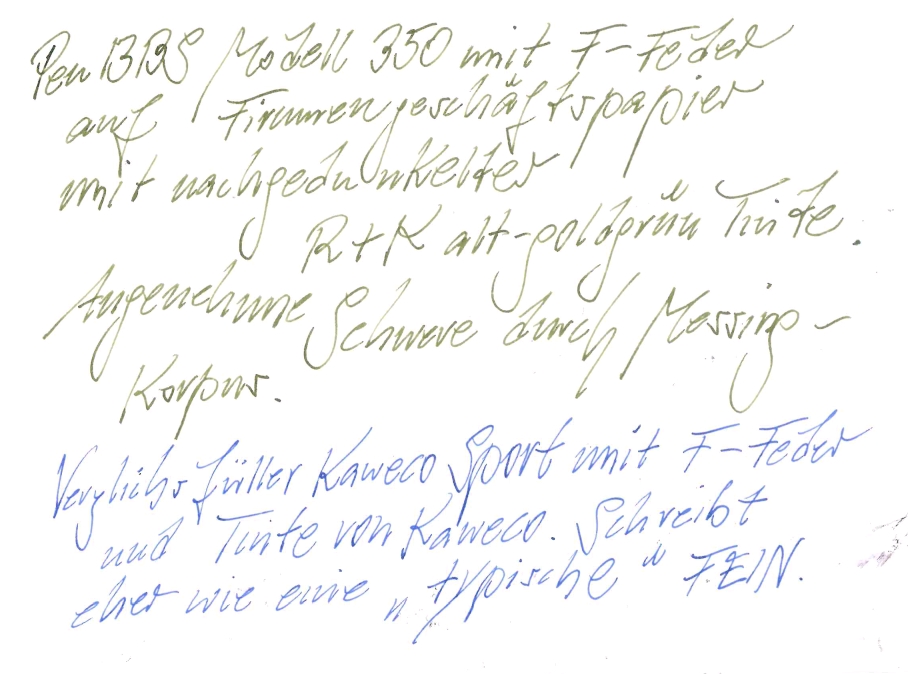 PenBBS Modell 350 mit F-Feder
auf Firmengeschäftspapier
mit nachgedunkelter
R+K alt-goldgrün Tinte.
Angenehme Schwere durch Messing-
Korpus.
Vergleichsfüller Kaweco Sport mit F-Feder
und Tinte von Kaweco. Schreibt
eher wie eine „typische“ FEIN.